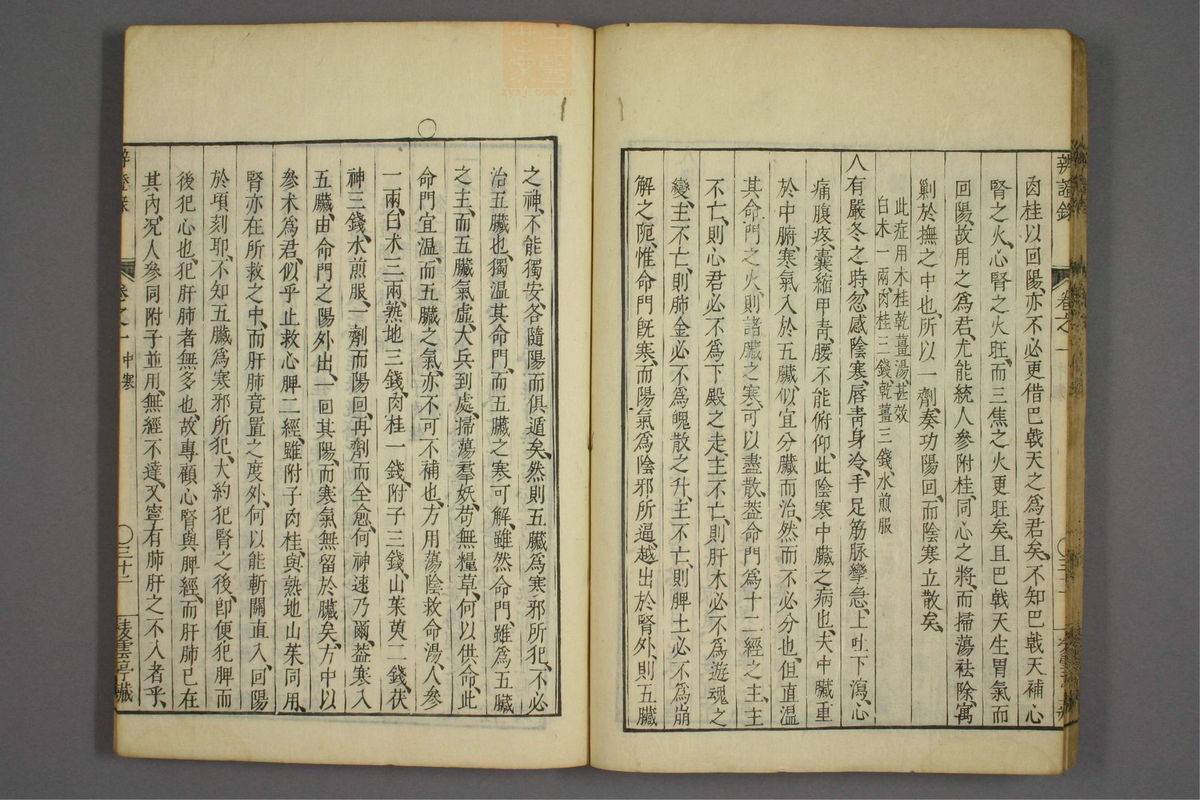 肉桂以回陽、亦不必更借巴戟天之爲君矣、不知巴戟天補心
腎之火、心腎之火旺、而三焦之火更旺矣、且巴戟天生胃氣而
回陽、故用之爲君、尤能統人參附桂同心之將、而掃蕩祛除、寓
剿於撫之中也、所以一劑、奏功陽回、而陰寒立散矣、
此症用术桂乾薑湯甚效
白术一兩、肉桂三錢、乾薑三錢、水煎服
人有嚴冬之時、忽感陰寒、唇青身冷、手足筋脉攣急、上吐下瀉、心
痛腹疼、囊縮甲青、腰不能俯仰、此陰寒中臟之病也、夫中臟重
於中腑、寒氣入於五臟、似宜分臟而治、然而不必分也、但直温
其命門之火、則諸臟之寒、可以盡散、葢命門爲十二經之主、主
不亡、則心君必不爲下殿之走、主不亡、則肝木必不爲遊魂之
變、主不亡、則肺金必不爲魄散之升、主不亡、則脾土必不爲崩
解之阨、惟命門旣寒、而陽氣爲陰邪所逼、越出於腎外、則五臟
辨證錄 卷之一
之神、不能獨安、各隨陽而俱遁矣、然則五臟爲寒邪所犯、不必
治五臟也、獨温其命門、而五臟之寒可解、雖然命門、雖爲五臟
之主、而五臟氣虛、大兵到處、掃蕩羣妖、苟無糧草、何以供命、此
命門宜温、而五臟之氣、亦不可不補也、方用蕩陰救命湯人參
一兩、白术三兩、熟地三錢、肉桂一錢、附子三錢、山茱萸二錢、茯
神三錢、水煎服、一劑而陽回、再劑而全愈、何神速乃爾、葢寒入
五臟、由命門之陽外出、一回其陽、而寒氣無留於臟矣、方中以
參术爲君、似乎止救心脾二經、雖附子肉桂、與熟地山茱同用、
腎亦在所救之中、而肝肺竟置之度外、何以能斬關直入、回陽
於項刻耶、不知五臟爲寒邪所犯、大約犯腎之後、卽便犯脾而
後犯心也、犯肝肺者無多也、故專顧心腎與脾經、而肝肺已在
其內、况人參同附子並用、無經不達、又寧有肺肝之不入者乎、
卷之一 中寒 〇三十二